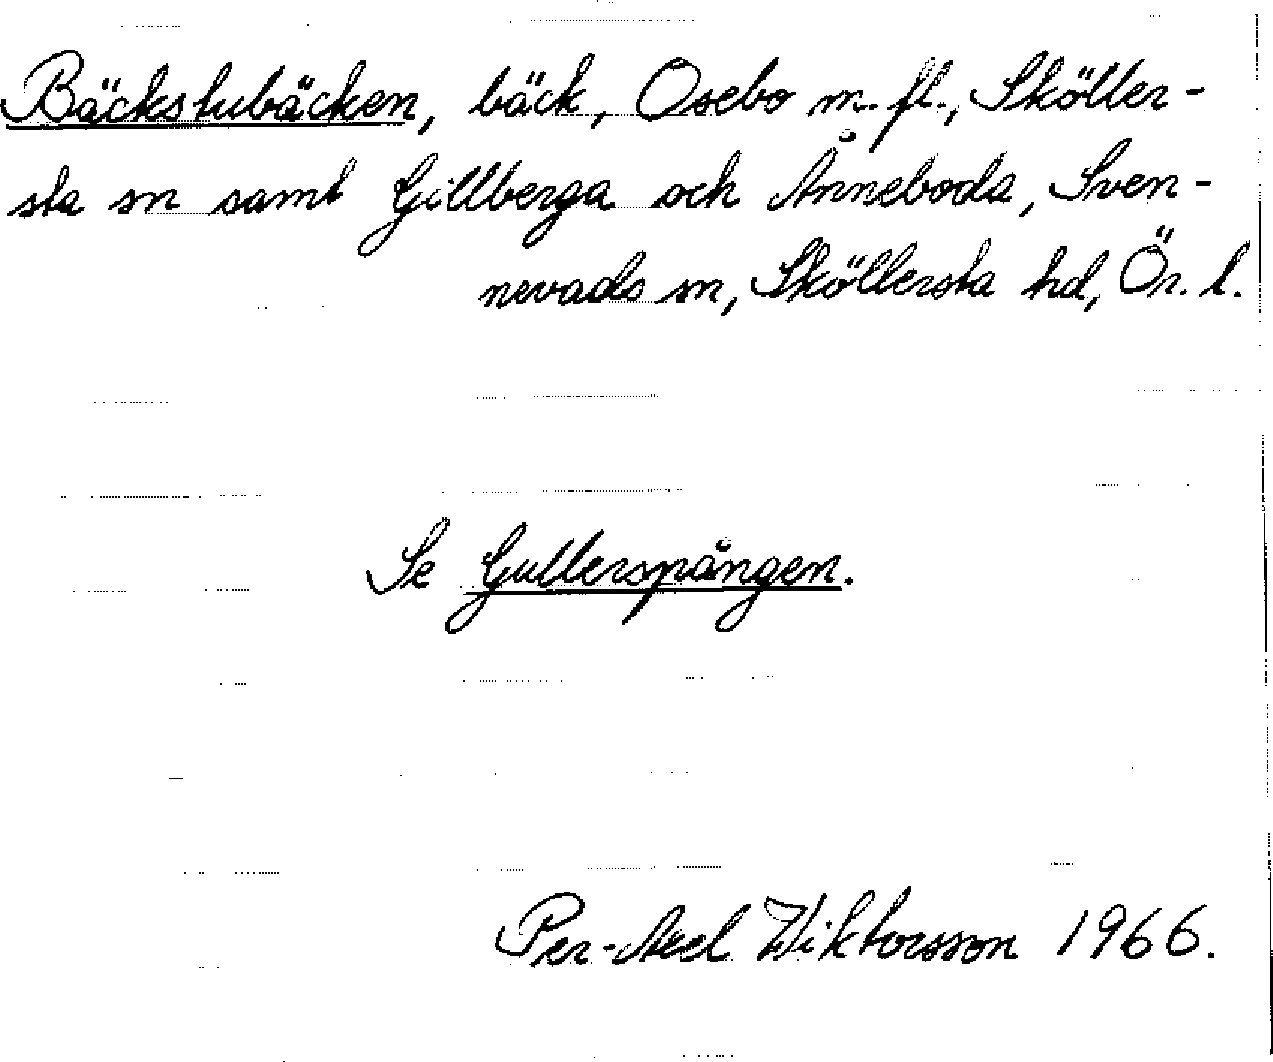 Bäckstubäcken, bäck, Osebo m. fl., Sköller-
sta sn samt Gillberga och Ånneboda, Sven-
nevads sn, Sköllersta hd, Ör. l.
Se Gullerspången.
Per-Axel Wiktorsson 1966.